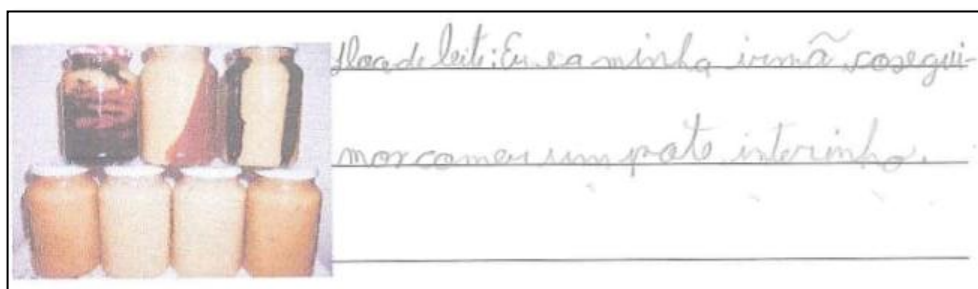 Doce de leite: Eu e a minha irmã cosegui-
mos comer um pote interinho.